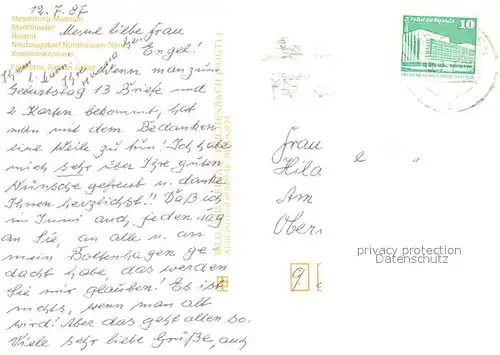 12.7.87
Meine liebe Frau
Engel!
Wenn man zum
Geburtstag 13 Briefe und
2 Karten bekommt, hat
man mit dem Bedanken
eine Weile zu tun! Ich habe
mich sehr über Ihre guten
Wünsche gefreut u. danke
Ihnen herzlichst!! Daß ich
im Juni auch jeden Tag
an Sie, an alle u. an
mein Boltenhagen ge-
dacht habe, das werden
Sie mir glauben! Es ist
nichts, wenn man alt
wird! Aber das geht allen so.
Viele sehr liebe Grüße, auch
Meyenburg-Museum
Stadttheater
Roland
Neubaugebiet Nordhausen-Nord
Kreiskrankenhaus
10
Frau
Hila
Am
Ober
9
privacy protection
Datenschutz